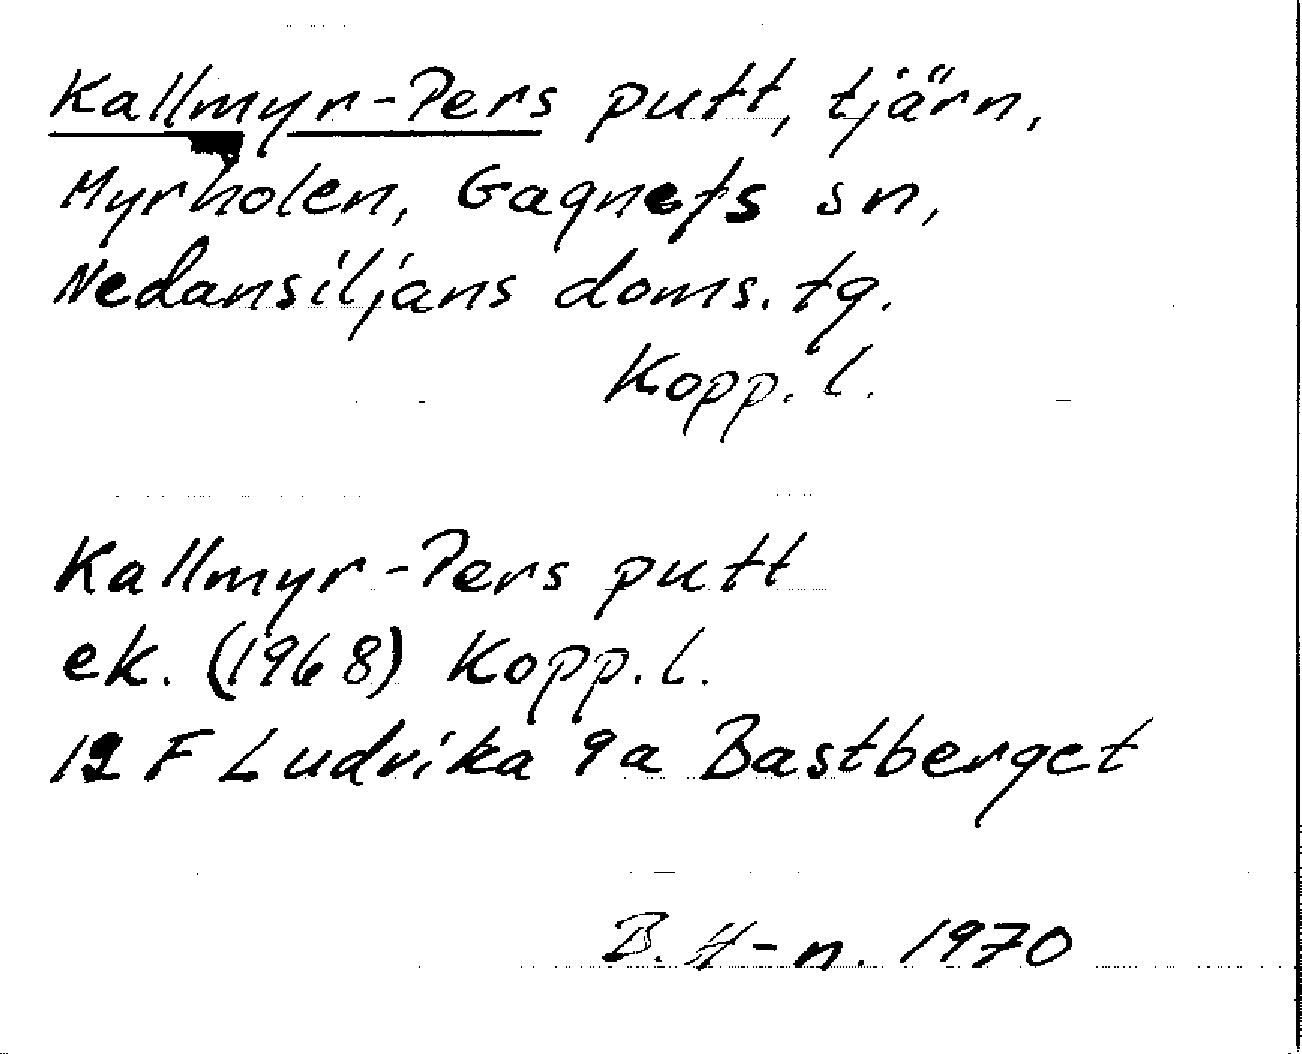 Kallmyr-Pers putt, tjärn,
Myrholen, Gagnefs sn,
Nedansiljans doms. tg.
Kopp. l.
Kallmyr-Pers putt
ek. (1968) Kopp. l.
12 F Ludvika 9a Bastberget
B. H-n. 1970